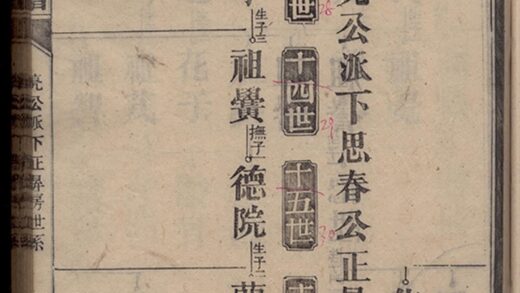 公派下思春公正
世 28 十四世 29 十五世 30
生子二 祖黌 撫子一 德院 生子二
亮公派下正昇房世系